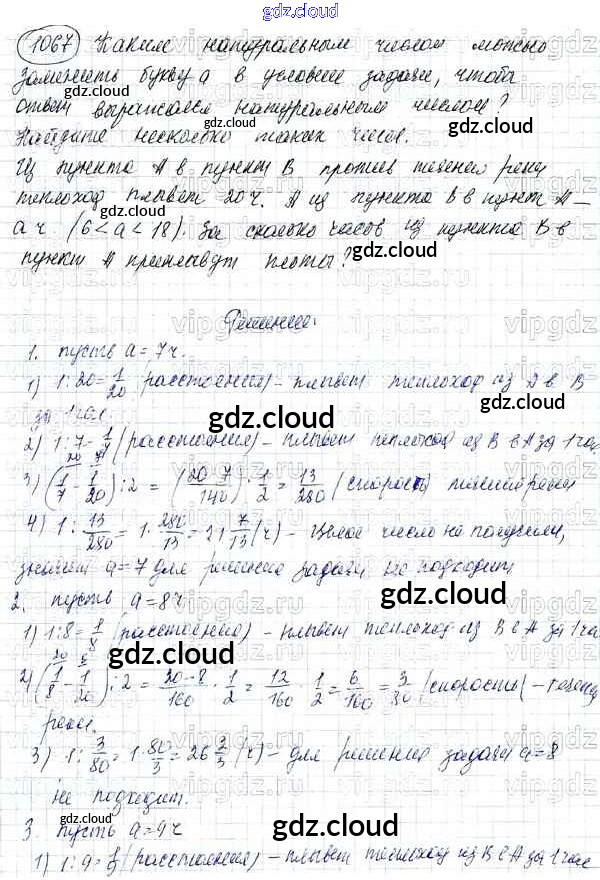 gdz.cloud
1067 Каким натуральным числом можно
заменить букву a в условии задачи, чтобы
ответ выражался натуральным числом?
Найдите несколько таких чисел.
Из пункта A в пункт B против течения реки
теплоход плывет 20 ч. А из пункта B в пункт A –
a ч. (6 < a < 18). За сколько часов из пункта B в
пункт A приплывут плоты?
Решение.
1. пусть a = 7 ч.
1) 1:20 = 1/20 (расстояния) – плывет теплоход из A в B
за 1 час.
2) 1:7 = 1/7 (расстояния) – плывет теплоход из B в A за 1 час
3) (1/7 - 1/20) : 2 = (20-7/140) · 1/2 = 13/280 (скорость) течения реки
4) 1 : 13/280 = 1 · 280/13 = 21 7/13 (ч) – целое число не получили,
значит a = 7 для решения задачи не подходит
2. пусть a = 8 ч
1) 1:8 = 1/8 (расстояния) – плывет теплоход из B в A за 1 час
2) (1/8 - 1/20) : 2 = 20-8/160 · 1/2 = 12/160 · 1/2 = 6/160 = 3/80 (скорость) – течения
реки.
3) 1 : 3/80 = 1 · 80/3 = 26 2/3 (ч) – для решения задачи a = 8
не подходит.
3. пусть a = 9 ч
1) 1:9 = 1/9 (расстояния) – плывет теплоход из B в A за 1 час